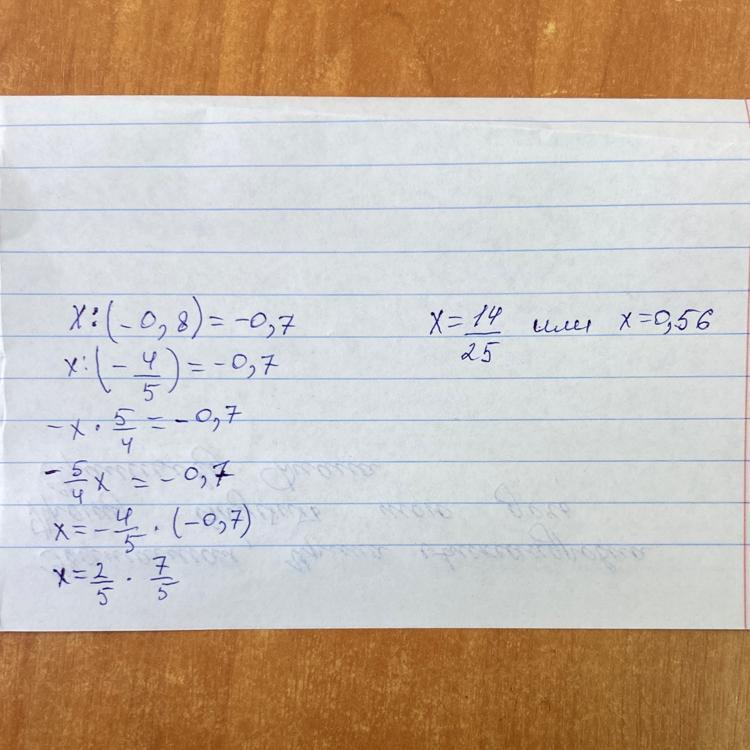 x:(-0,8)=-0,7
x:(-4/5)=-0,7
-x·5/4=-0,7
-5/4x=-0,7
x=-4/5·(-0,7)
x=2/5·7/5
x=14/25 или x=0,56